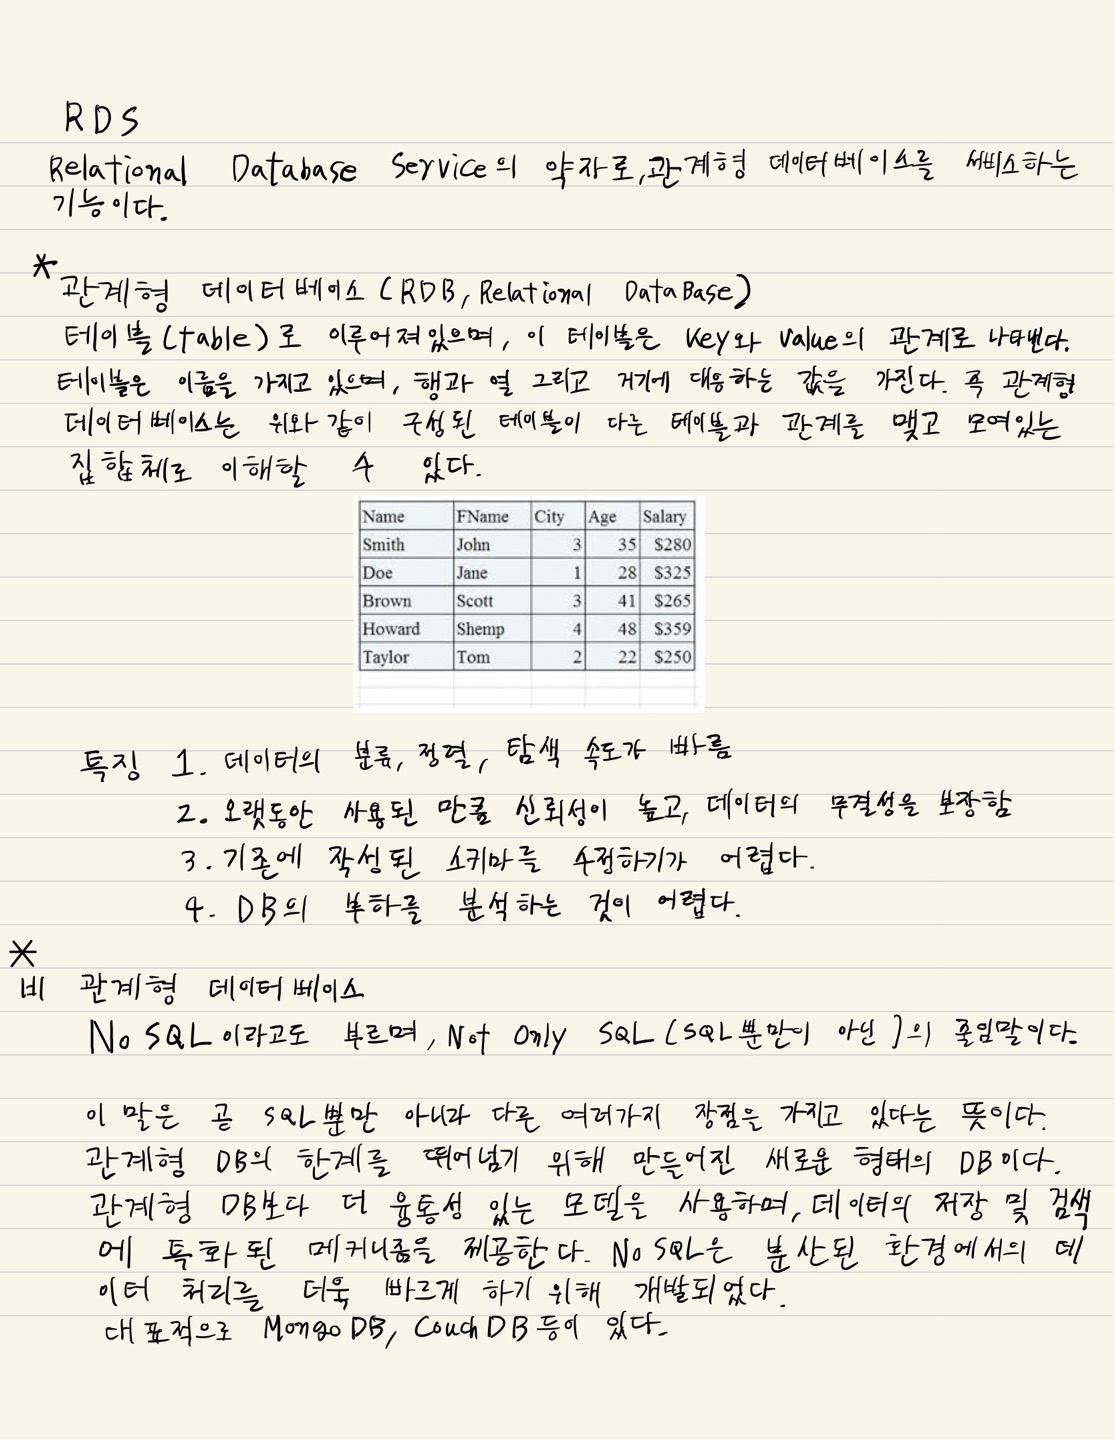 RDS
Relational Database Service의 약자로, 관계형 데이터베이스를 서비스하는
기능이다.
* 관계형 데이터베이스 (RDB, Relational DataBase)
테이블(table)로 이루어져있으며, 이 테이블은 key와 value의 관계로 나타낸다.
테이블은 이름을 가지고 있으며, 행과 열 그리고 거기에 대응하는 값을 가진다. 즉 관계형
데이터베이스는 위와 같이 구성된 테이블이 다른 테이블과 관계를 맺고 모여있는
집합체로 이해할 수 있다.
Name FName City Age Salary
Smith John 3 35 $280
Doe Jane 1 28 $325
Brown Scott 3 41 $265
Howard Shemp 4 48 $359
Taylor Tom 2 22 $250
특징 1. 데이터의 분류, 정렬, 탐색 속도가 빠름
2. 오랫동안 사용된 만큼 신뢰성이 높고, 데이터의 무결성을 보장함
3. 기존에 작성된 스키마를 수정하기가 어렵다.
4. DB의 부하를 분석하는 것이 어렵다.
*
비 관계형 데이터베이스
No SQL이라고도 부르며, Not Only SQL (SQL뿐만이 아닌)의 줄임말이다.
이 말은 곧 SQL뿐만 아니라 다른 여러가지 장점을 가지고 있다는 뜻이다.
관계형 DB의 한계를 뛰어넘기 위해 만들어진 새로운 형태의 DB이다.
관계형 DB보다 더 융통성 있는 모델을 사용하며, 데이터의 저장 및 검색
에 특화된 메커니즘을 제공한다. No SQL은 분산된 환경에서의 데
이터 처리를 더욱 빠르게 하기 위해 개발되었다.
대표적으로 MongoDB, CouchDB 등이 있다.